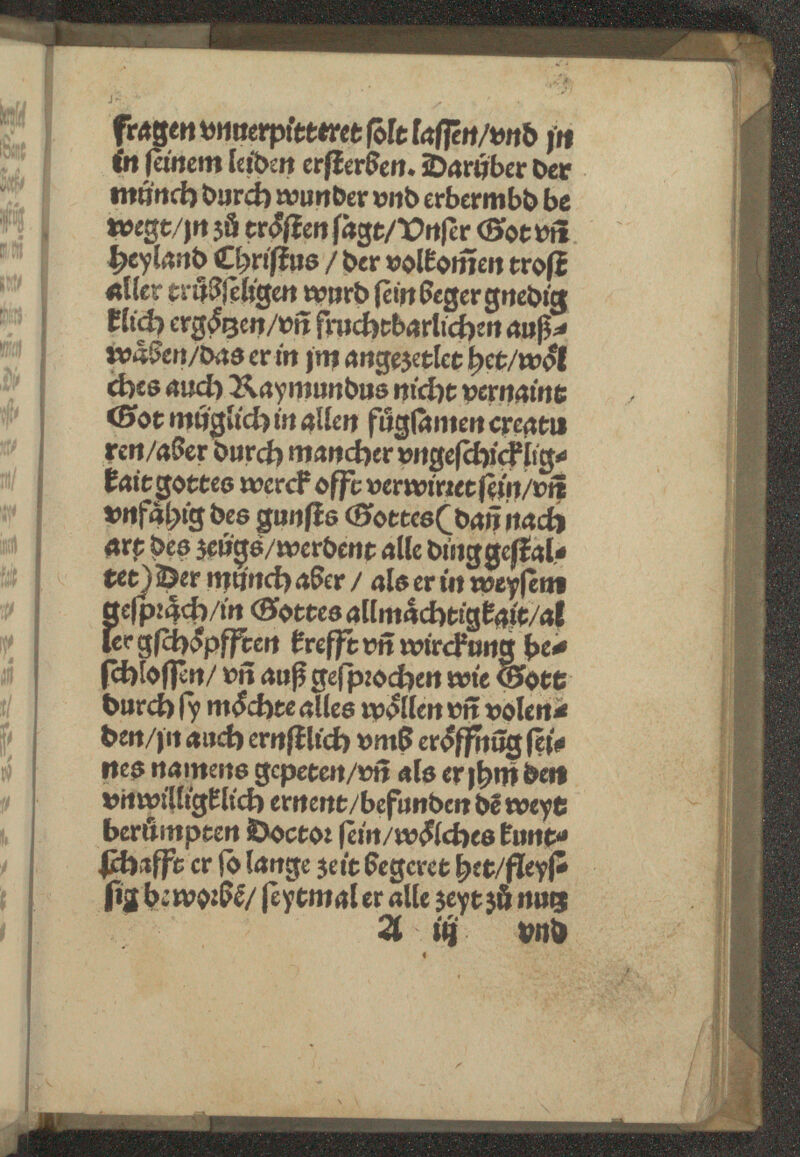 fragen vnuerpitteret ſolt laſſen/vnd jn
in ſeinem leiden erſterben. Darüber der
münch durch wunder vnd erbermbd be
wegt/jn zů tröſten ſagt/Vnſer Got vñ
heyland Chriſtus / der volkom̃en troſt
aller trübſeligen wurd ſein beger gnedig
klich ergötzen/vñ fruchtbarlichen auß⸗
wåben/das er in jm angezetlet het/wöl
ches auch Raymundus nicht vernaint
Got müglich in allen fůgſamen creatu
ren/aber durch mancher vngeſchicklig⸗
kait gottes werck offt verwirret ſein/vñ
vnfähig des gunſts Gottes(dañ nach
art des zeügs/werdent alle ding geſtal⸗
tet) Der münch aber / als er in weyſem
geſpräch/in Gottes allmächtigkait/al
ler gſchöpfften krefft vñ wirckung be⸗
ſchloſſen/ vñ auß geſprochen wie Gott
durch ſy möchte alles wöllen vñ volen⸗
den/jn auch ernſtlich vmb eröffnũg ſei⸗
nes namens gepeten/vñ als er jhm den
vnwilligklich ernent/befunden dẽ weyt
berůmpten Doctor ſein/wölches kunt⸗
ſchafft er ſo lange zeit begeret het/fleyſ⸗
ſig beworbẽ/ ſeytmal er alle zeyt zů nutz
A iij vnd